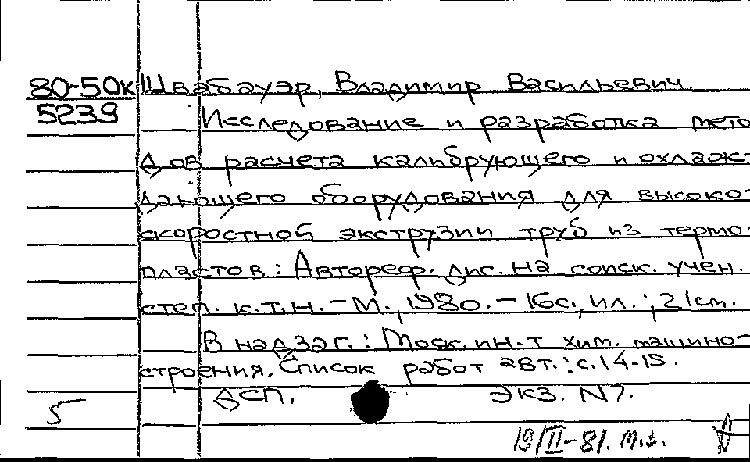 80-50к Швабауэр, Владимир Васильевич
5239 Исследование и разработка мето-
дов расчета калибрующего и охлаж-
дающего оборудования для высоко-
скоростной экструзии труб из термо-
пластов: Автореф. дис. на соиск. учен.
степ. к.т.н. - М., 1980. - 16с., ил.; 21см.
В надзаг.: Моск. ин-т хим. машино-
строения. Список работ авт.: с.14-15.
ДСП. экз. N7.
5
19/II-81.